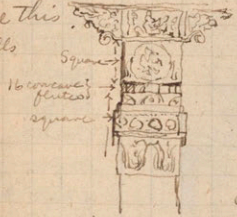 e this.
ls
Square
16 concave
flutes
square